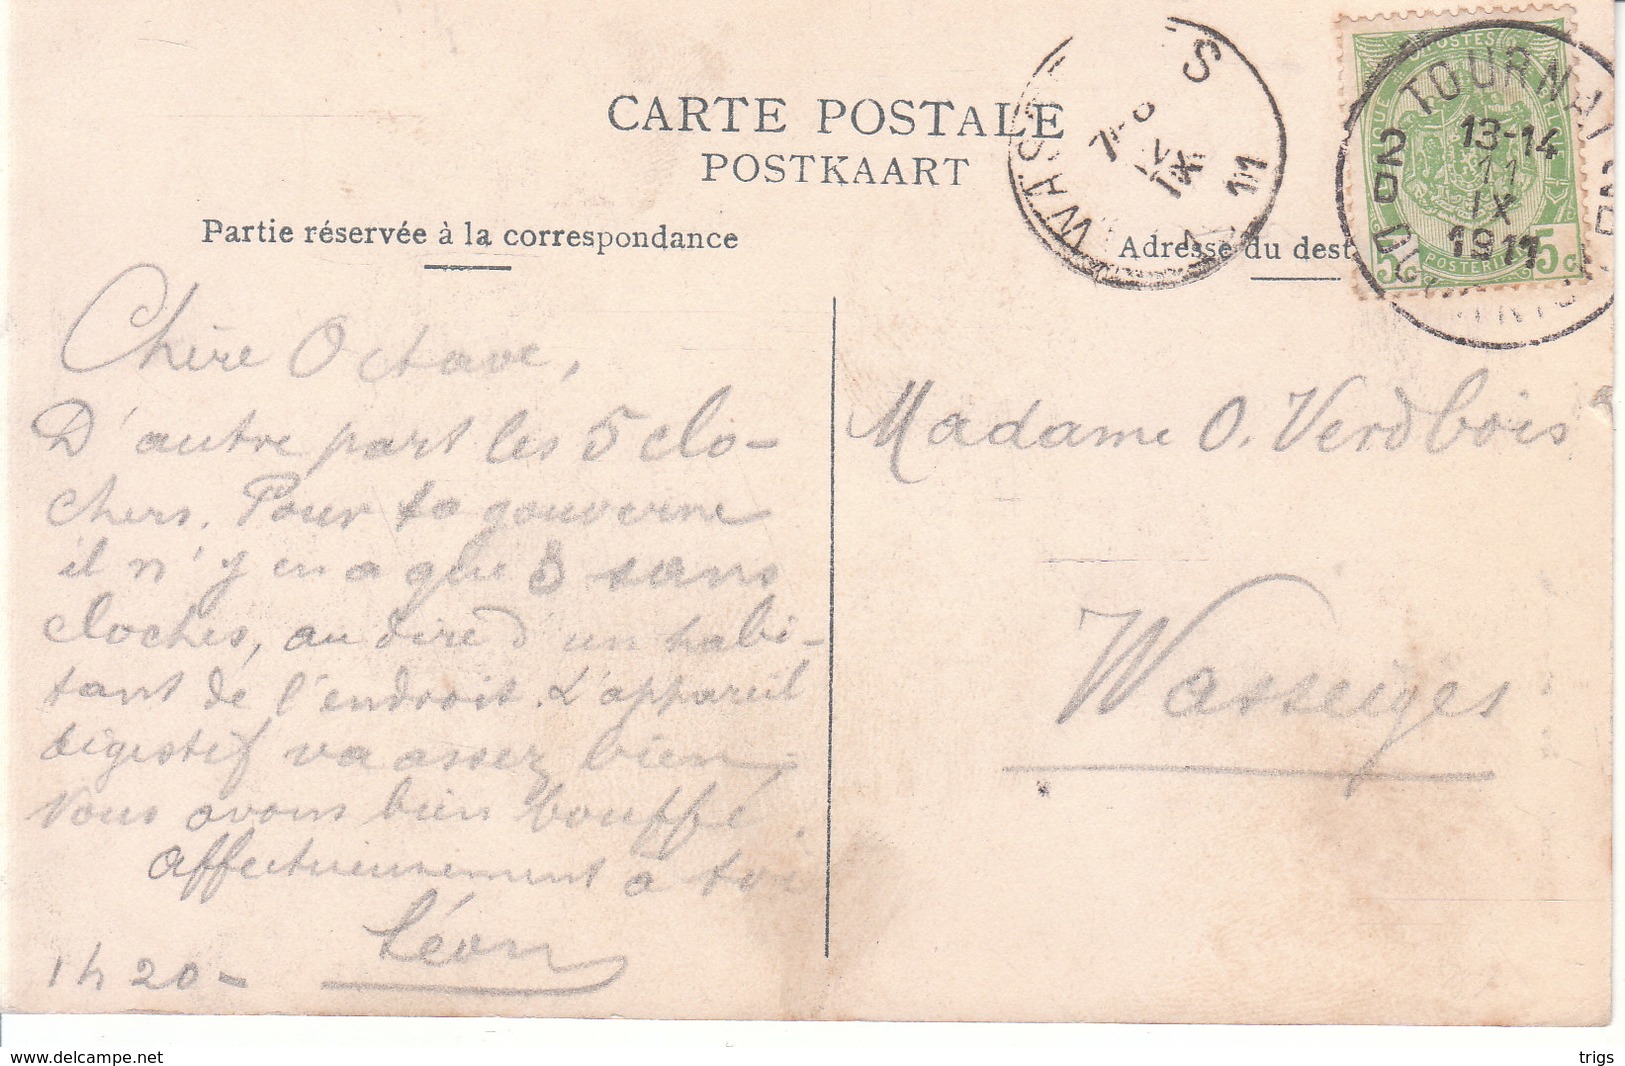 CARTE POSTALE
POSTKAART
Partie réservée à la correspondance
Adresse du dest
POSTES
TOURNAI
13-14
11
IX
1911
2D
5c
5c
7-8
IX
11
S
Chère Octave,
D'autre part les 5 clo-
chers. Pour ta gouverne
il n'y en a que 3 sans
cloches, au dire d'un habi-
tant de l'endroit. L'appareil
digestif va assez bien,
Nous avons bien bouffé.
Affectueusement à toi
Léon
1 h 20 -
Madame O. Verdbois
Wasseiges
www.delcampe.net
trigs